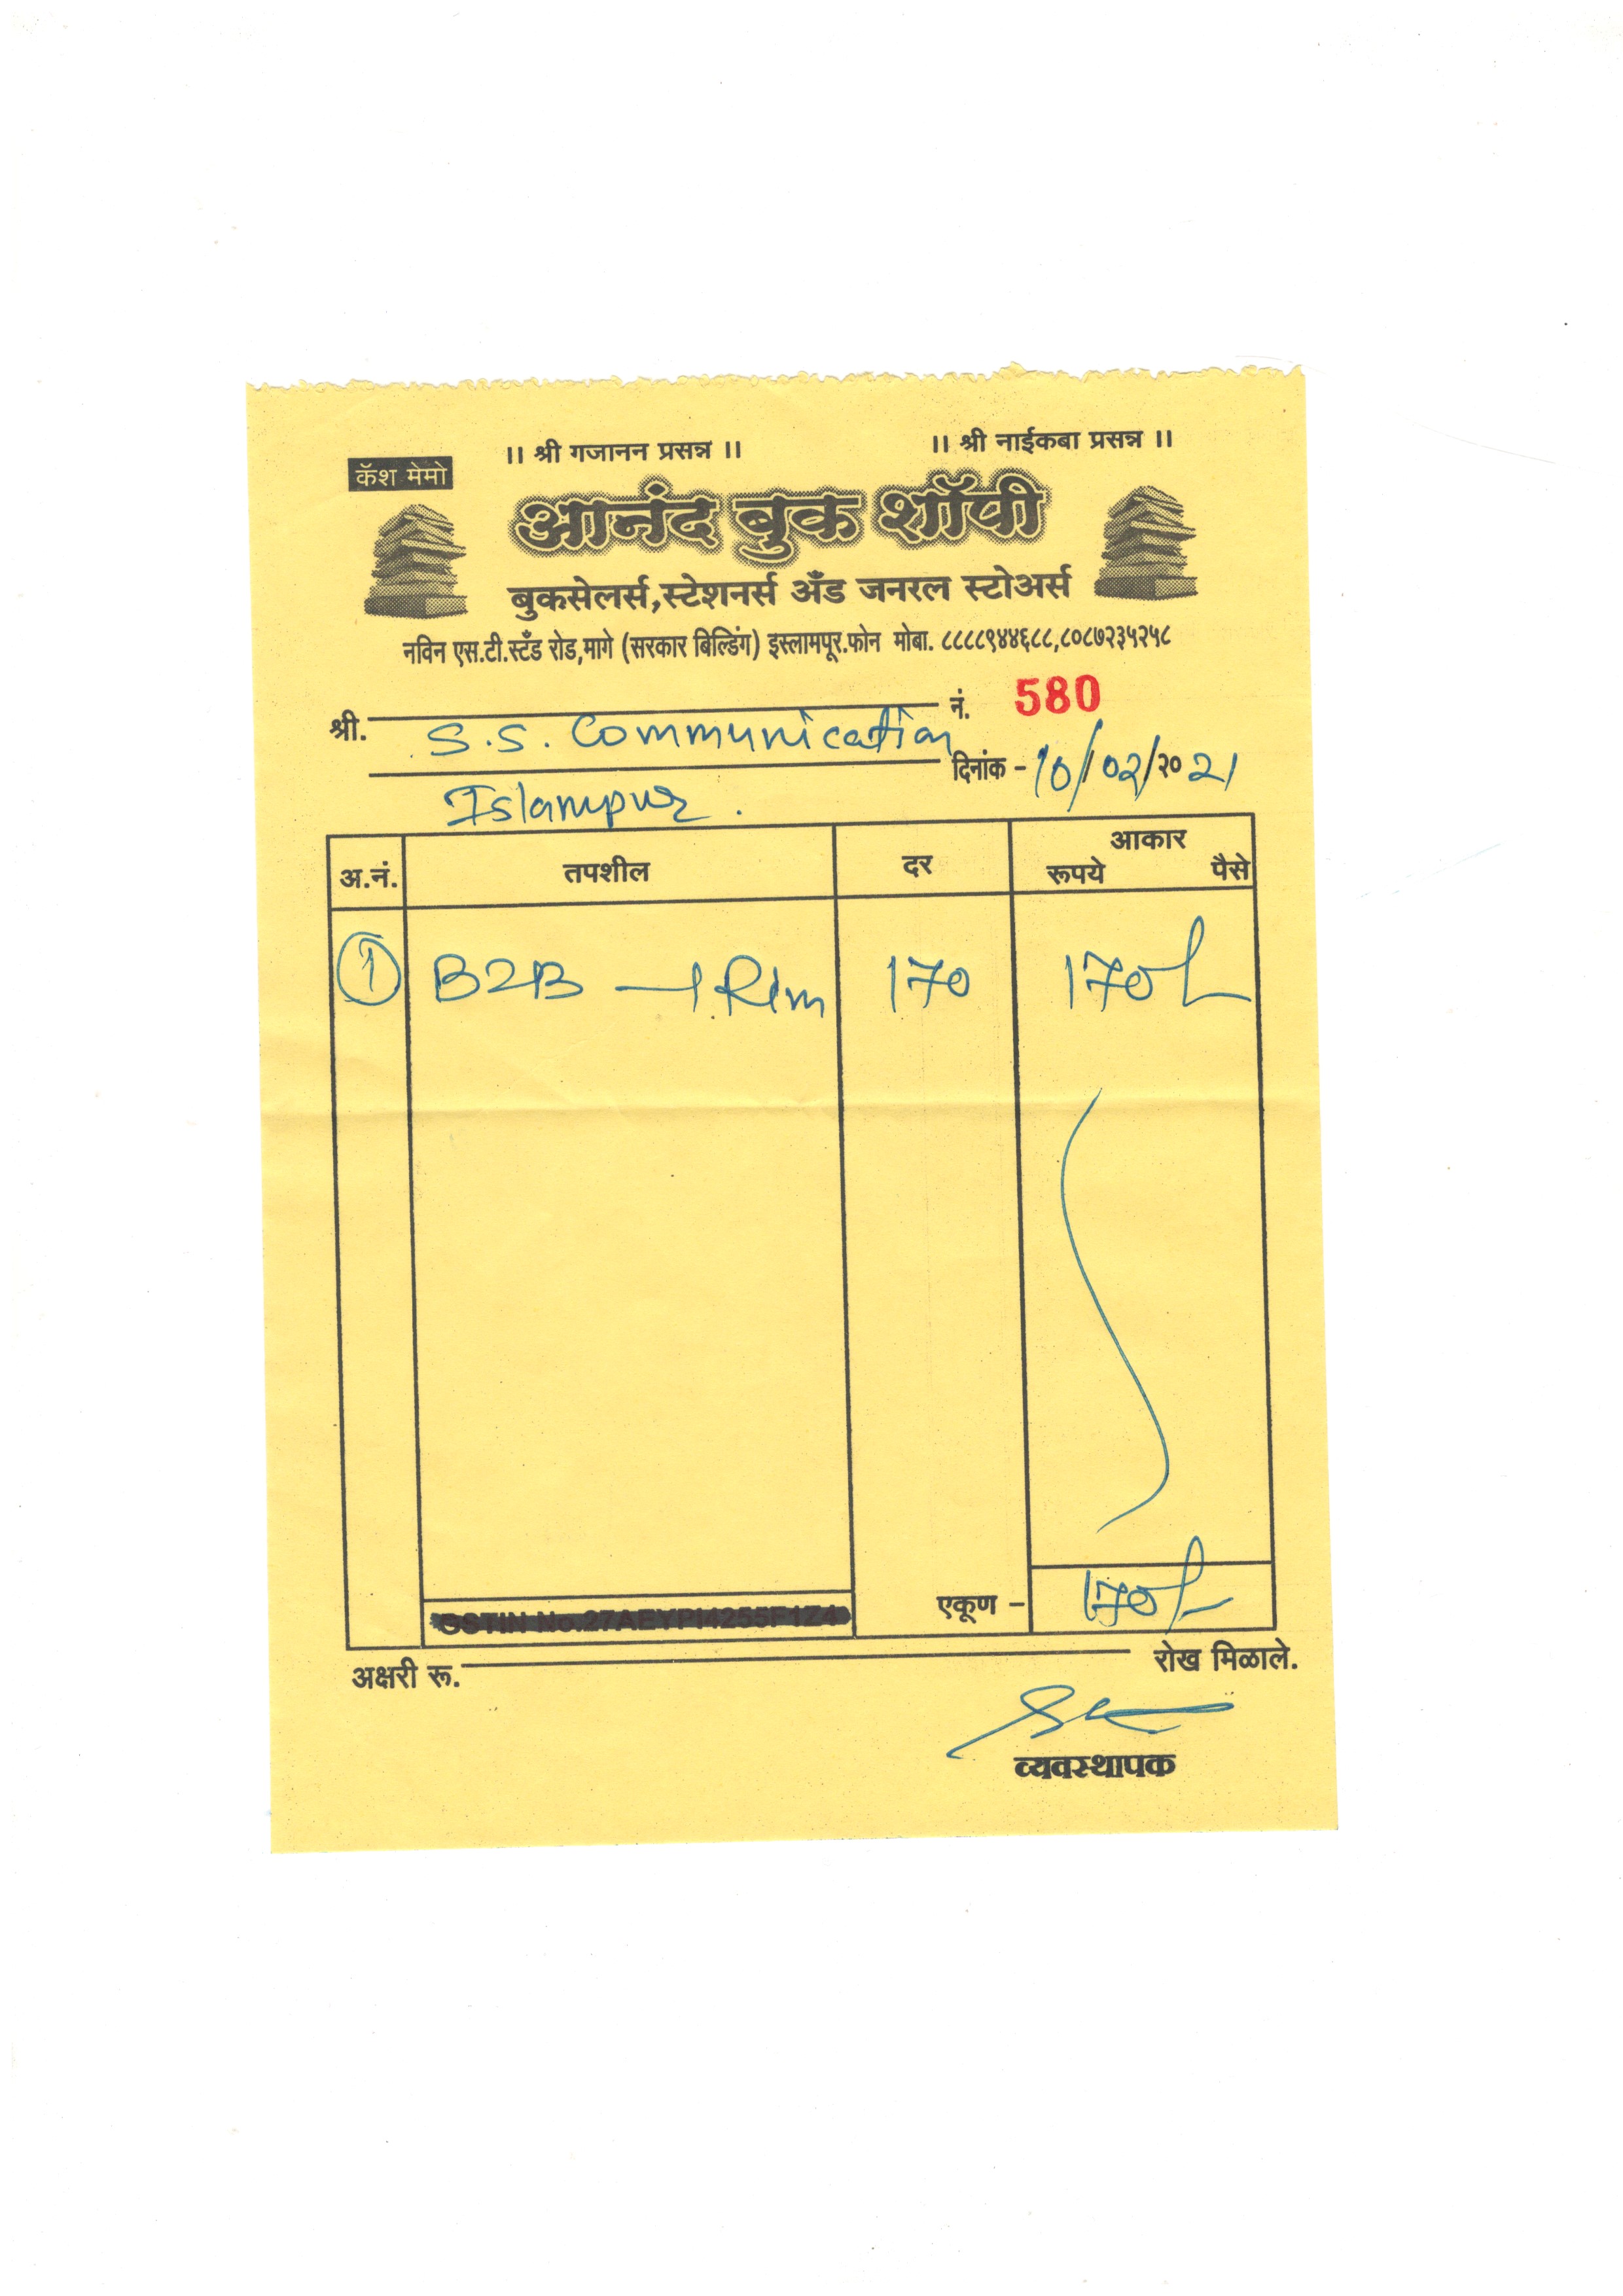 ।। श्री गजानन प्रसन्न ।। ।। श्री नाईकबा प्रसन्न ।।
कॅश मेमो
आनंद बुक शॉपी
बुकसेलर्स,स्टेशनर्स अँड जनरल स्टोअर्स
नविन एस.टी.स्टँड रोड,मागे (सरकार बिल्डिंग) इस्लामपूर.फोन मोबा. ८८८८९४४६८८,८०८७२३५२५८
श्री. S.S. Communication नं. 580
Islampur. दिनांक - 10/02/२०21
अ.नं. तपशील दर आकार
रूपये पैसे
1 B2B — 1 Rim 170 170/-
GSTIN No.27AEYPI4255F1Z4 एकूण – 170/-
अक्षरी रू. रोख मिळाले.
व्यवस्थापक